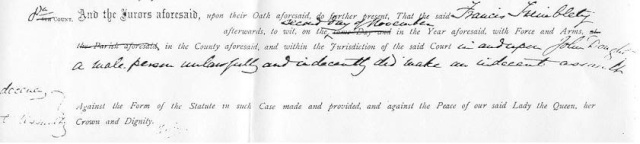 8th COUNT. And the Jurors aforesaid, upon their Oath aforesaid, do further present, That the said Francis Tumblety
second Day of November
afterwards, to wit, on the same Day and in the Year aforesaid, with Force and Arms, at
the Parish aforesaid, in the County aforesaid, and within the Jurisdiction of the said Court in and upon John
a male person unlawfully and indecently did make an indecent assault
Against the Form of the Statute in such Case made and provided, and against the Peace of our said Lady the Queen, her
Crown and Dignity.